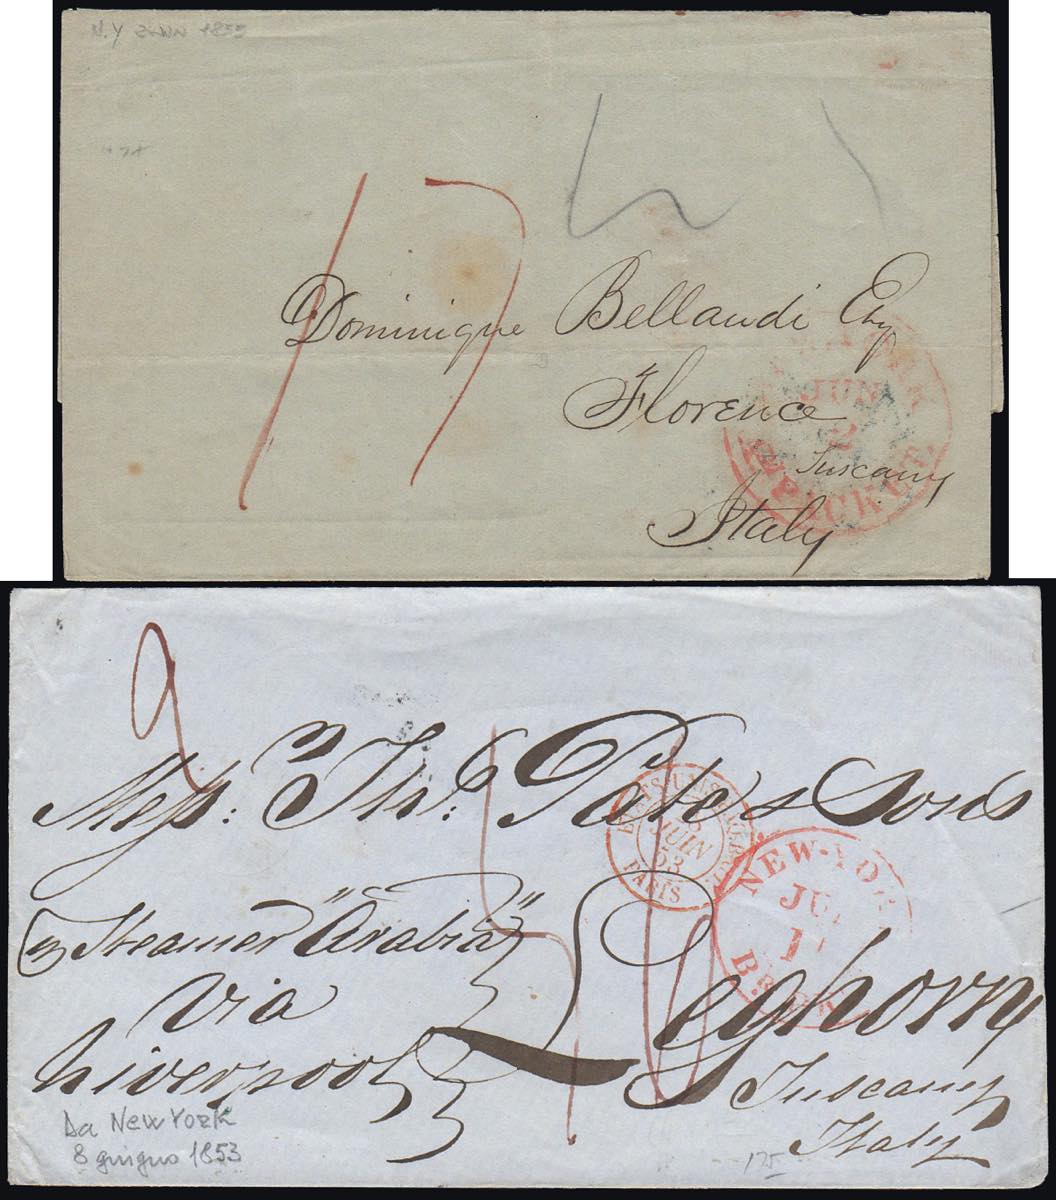 N.Y
1855
17
Dominique Bellandi Esq
Florence
Tuscany
Italy
JUN
2
PACKET
2
Mess: Th: Pate & Sons
Steamer "Arabia"
via
Liverpool
Leghorn
Tuscany
Italy
JUIN
53
PARIS
NEW-YORK
BR
Da New York
8 giugno 1853
125